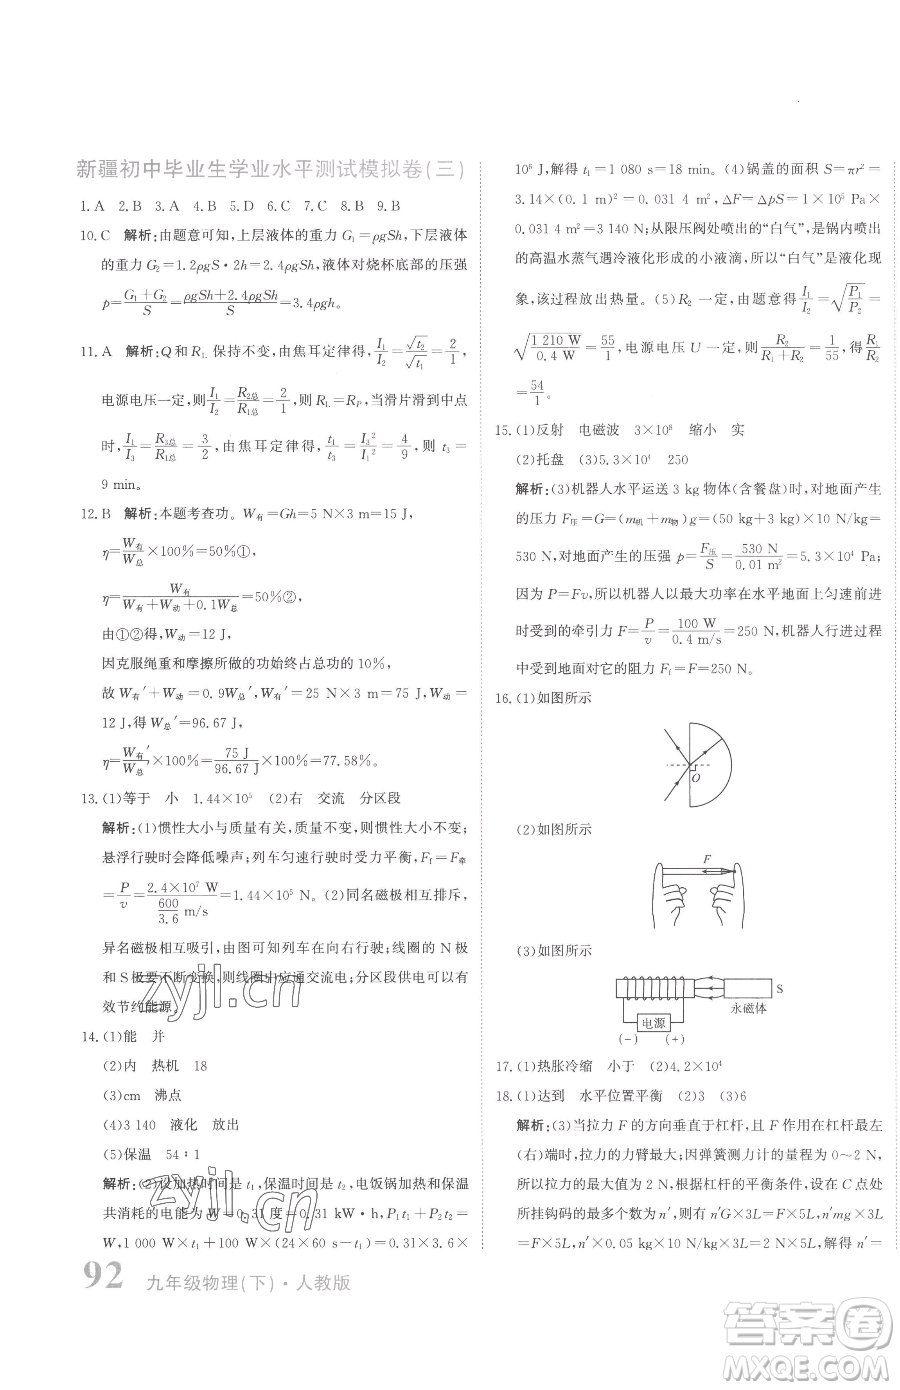 新疆初中毕业生学业水平测试模拟卷(三)
1. A  2. B  3. A  4. B  5. D  6. C  7. C  8. B  9. B
10. C  解析:由题意可知,上层液体的重力 G₁=ρgSh,下层液体
的重力 G₂=1.2ρgS·2h=2.4ρgSh,液体对烧杯底部的压强
p=(G₁+G₂)/S=(ρgSh+2.4ρgSh)/S=3.4ρgh。
11. A  解析:Q 和 R_L 保持不变,由焦耳定律得,I₁/I₂=√t₂/√t₁=2/1,
电源电压一定,则 I₁/I₂=R₂总/R₁总=2/1,则 R_L=R_P,当滑片滑到中点
时,I₁/I₃=R₃总/R₁总=3/2,由焦耳定律得,t₁/t₃=I₃²/I₁²=4/9,则 t₃=
9 min。
12. B  解析:本题考查功。W有=Gh=5 N×3 m=15 J,
η=W有/W总×100%=50%①,
η=W有/(W有+W动+0.1W总)=50%②,
由①②得,W动=12 J,
因克服绳重和摩擦所做的功始终占总功的 10%,
故 W有′+W动=0.9W总′,W有′=25 N×3 m=75 J,W动=
12 J,得 W总′=96.67 J,
η=W有′/W总′×100%=75 J/96.67 J×100%=77.58%。
13. (1)等于  小  1.44×10⁵  (2)右  交流  分区段
解析:(1)惯性大小与质量有关,质量不变,则惯性大小不变;
悬浮行驶时会降低噪声;列车匀速行驶时受力平衡,F_f=F牵
=P/v=2.4×10⁷ W/(600/3.6 m/s)=1.44×10⁵ N。(2)同名磁极相互排斥,
异名磁极相互吸引,由图可知列车在向右行驶;线圈的 N 极
和 S 极要不断变换,则线圈中应通交流电;分区段供电可以有
效节约能源。
14. (1)能  并
(2)内  热机  18
(3)cm  沸点
(4)3 140  液化  放出
(5)保温  54∶1
解析:(2)设加热时间是 t₁,保温时间是 t₂,电饭锅加热和保温
共消耗的电能为 W=0.31 度=0.31 kW·h,P₁t₁+P₂t₂=
W,1 000 W×t₁+(24×60×60 s-t₁)×0.4 W=0.31×3.6×
92  九年级物理(下)·人教版
10⁶ J,解得 t₁=1 080 s=18 min。(4)锅盖的面积 S=πr²=
3.14×(0.1 m)²=0.031 4 m²,ΔF=ΔpS=1×10⁵ Pa×
0.031 4 m²=3 140 N;从限压阀处喷出的“白气”,是锅内喷出
的高温水蒸气遇冷液化形成的小液滴,所以“白气”是液化现
象,该过程放出热量。(5)R₂ 一定,由题意得 I₁/I₂=√(P₁/P₂)=
√(1 210 W/0.4 W)=55/1,电源电压 U 一定,则 R₂/(R₁+R₂)=1/55,得 R₁/R₂
=54/1。
15. (1)反射  电磁波  3×10⁸  缩小  实
(2)托盘  (3)5.3×10⁴  250
解析:(3)机器人水平运送 3 kg 物体(含餐盘)时,对地面产生
的压力 F压=G=(m机+m物)g=(50 kg+3 kg)×10 N/kg=
530 N,对地面产生的压强 p=F压/S=530 N/0.01 m²=5.3×10⁴ Pa;
因为 P=Fv,所以,机器人以最大功率在水平地面上匀速前进
时受到的牵引力 F=P/v=100 W/0.4 m/s=250 N,机器人行进过程
中受到地面对它的阻力 F_f=F=250 N。
16. (1)如图所示
O
(2)如图所示
F
(3)如图所示
S
永磁体
电源
(-)  (+)
17. (1)热胀冷缩  小于  (2)4.2×10⁴
18. (1)达到  水平位置平衡  (2)3  (3)6
解析:(3)当拉力 F 的方向垂直于杠杆,且 F 作用在杠杆最左
(右)端时,拉力的力臂最大;因弹簧测力计的量程为 0～2 N,
所以拉力的最大值为 2 N,根据杠杆的平衡条件,设在 C 点处
所挂钩码的最多个数为 n′,则有 n′G×3L=F×5L,n′mg×3L
=F×5L,n′×0.05 kg×10 N/kg×3L=2 N×5L,解得 n′≈
zyjl.cn
zyjl.cn
答案圈
MXQE.COM